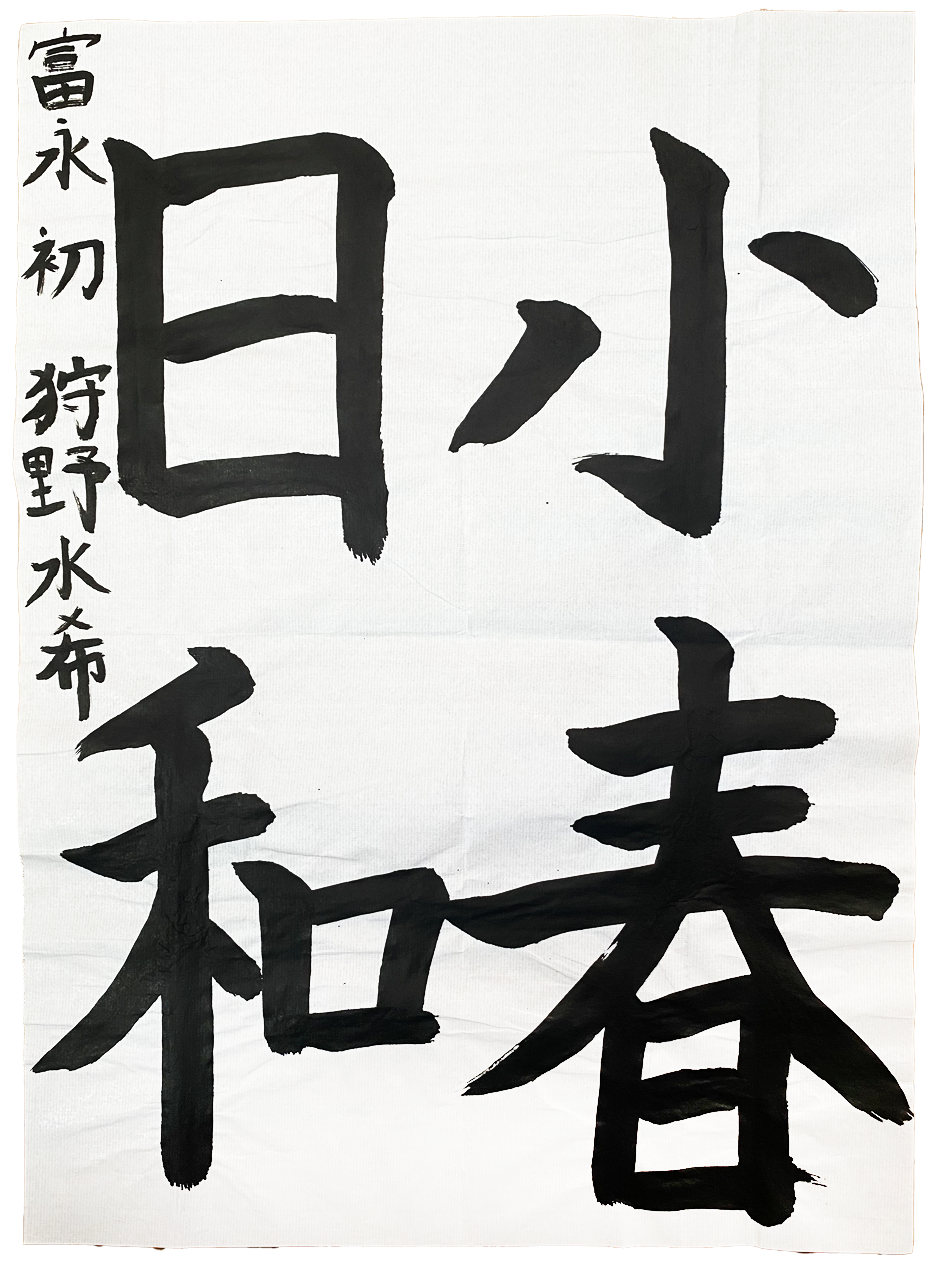 小春
日和
富永 初 狩野水希